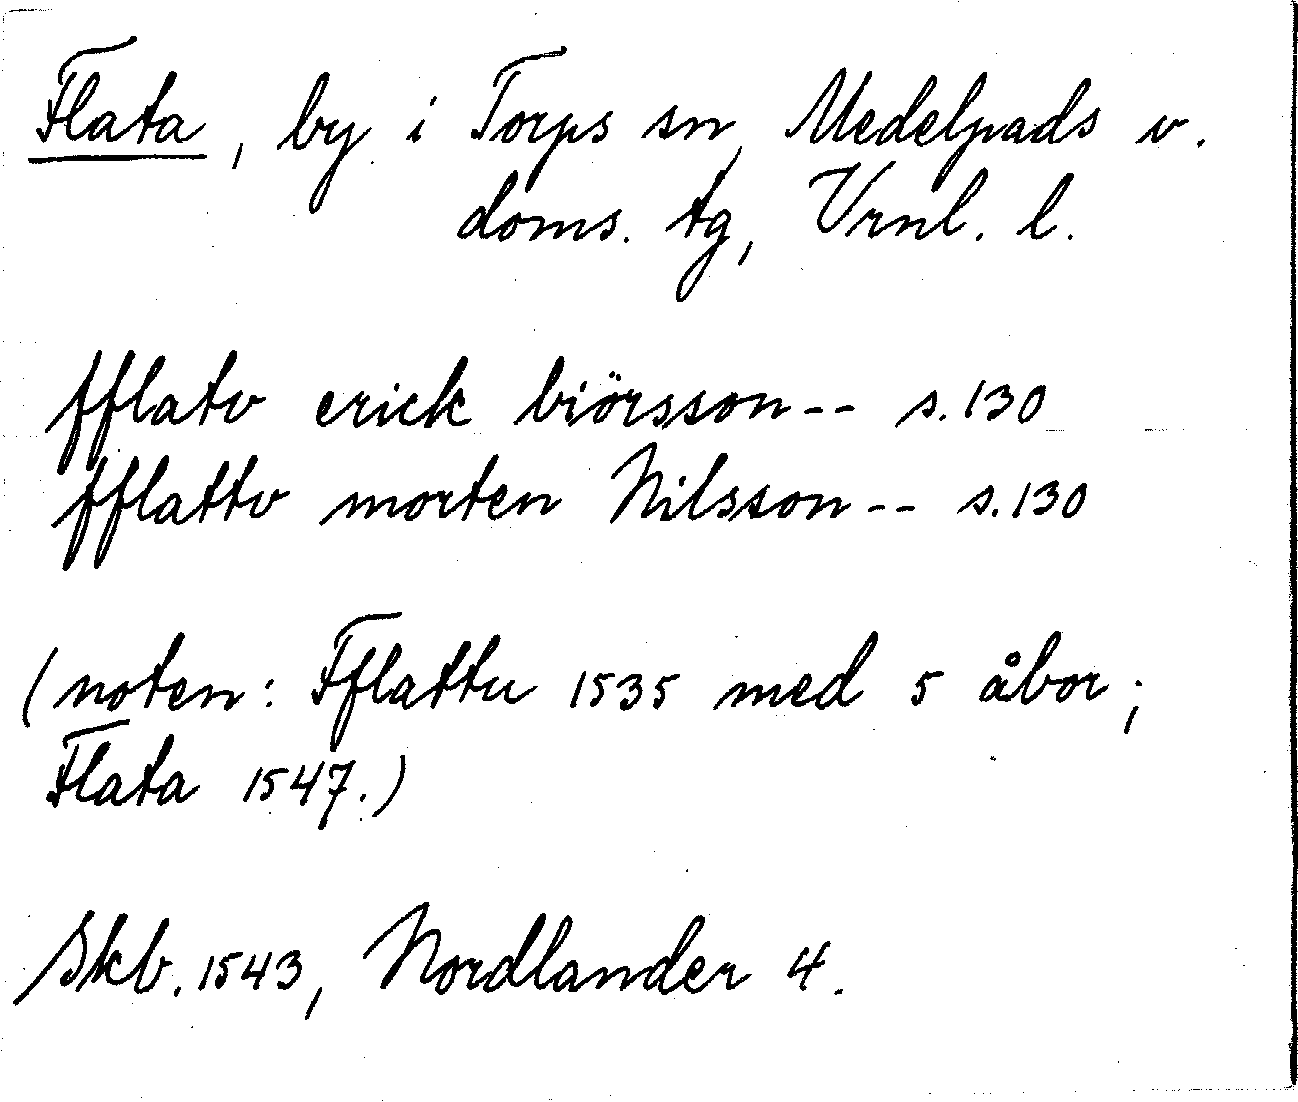 Flata, by i Torps sn, Medelpads v.
doms. tg, Vrnl. l.
fflatv erick biörsson-- s.130
fflattv morten Nilsson-- s.130
(noten: Fflattu 1535 med 5 åbor;
Flata 1547.)
Skb. 1543, Nordlander 4.